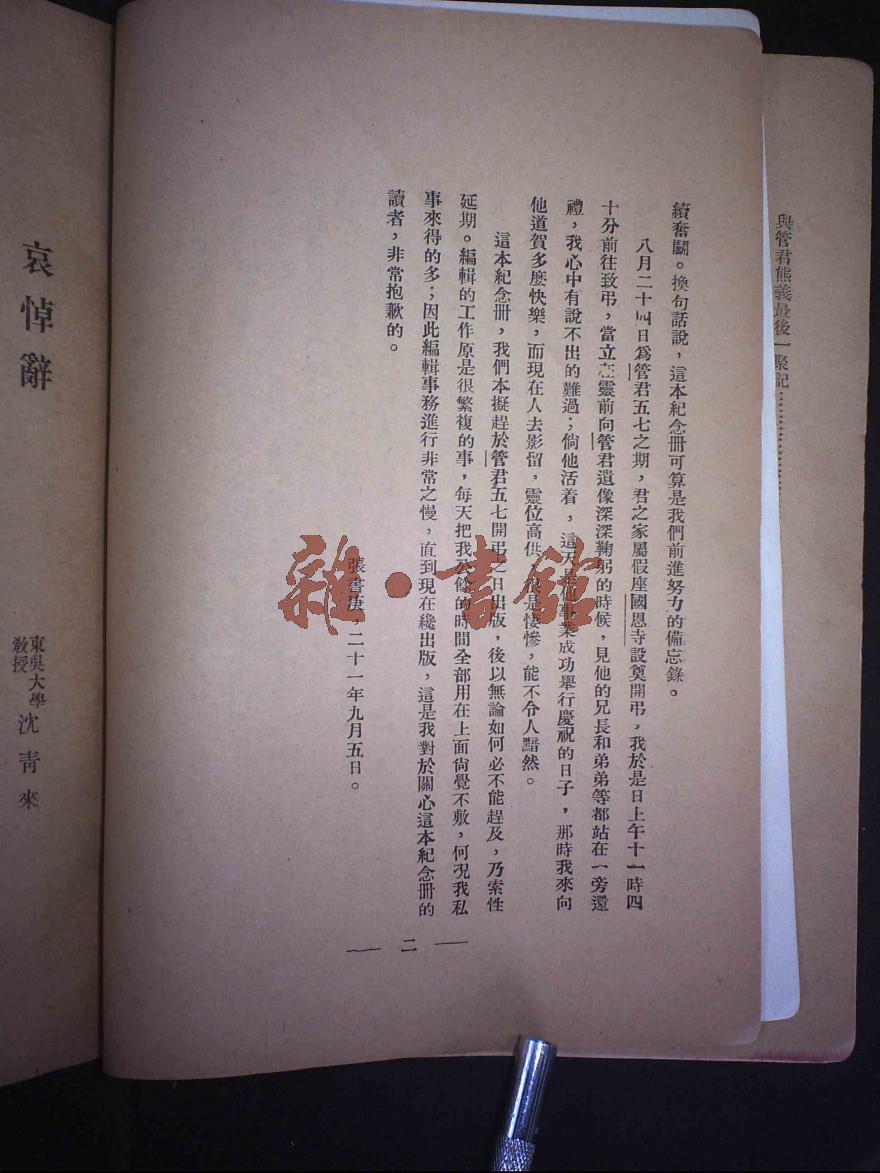 與管君熊義最後一聚記
續奮鬪。換句話說，這本紀念册可算是我們前進努力的備忘錄。
八月二十四日爲管君五七之期，君之家屬假座國恩寺設奠開弔，我於是日上午十一時四
十分前往致弔，當立在靈前向管君遺像深深鞠躬的時候，見他的兄長和弟弟等都站在一旁還
禮，我心中有說不出的難過；倘他活着，這天是他事業成功舉行慶祝的日子，那時我來向
他道賀多麽快樂，而現在人去影留，靈位高供，很是悽慘，能不令人黯然。
這本紀念册，我們本擬趕於管君五七開弔之日出版，後以無論如何必不能趕及，乃索性
延期。編輯的工作原是很繁複的事，每天把我公餘的時間全部用在上面尙覺不敷，何况我私
事來得的多；因此編輯事務進行非常之慢，直到現在纔出版，這是我對於關心這本紀念册的
讀者，非常抱歉的。
張書庚，二十一年九月五日。
二
哀悼辭
東吳大學
教授
沈青來
雜·書館